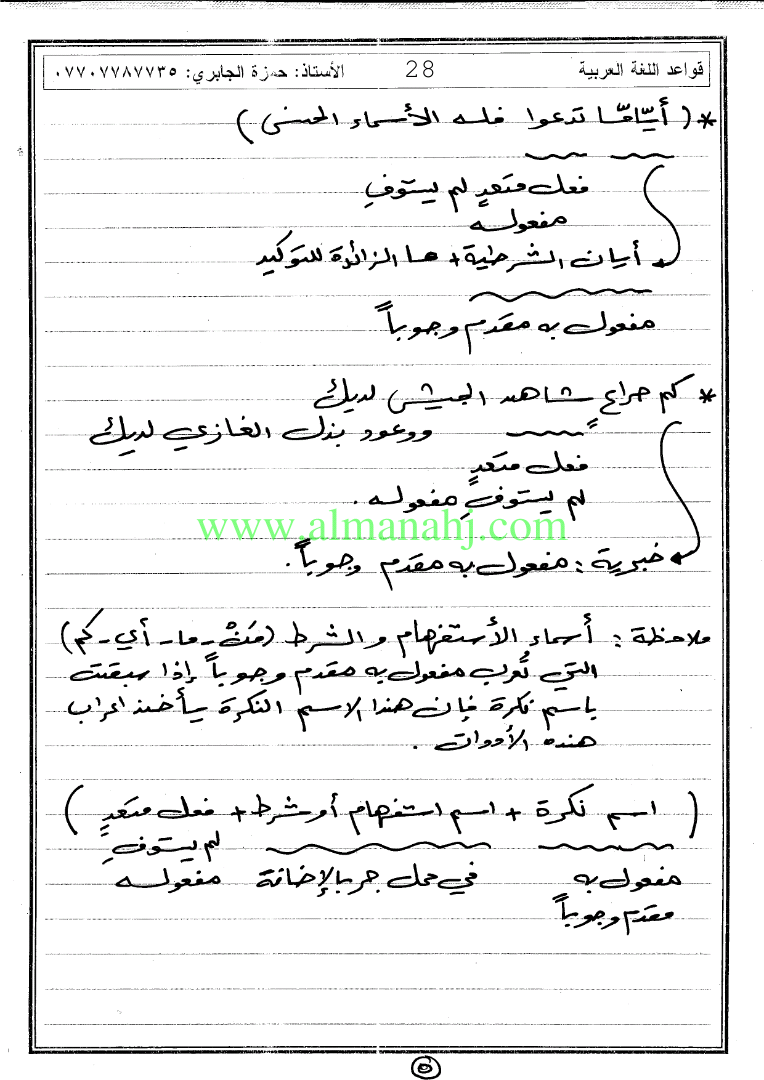 قواعد اللغة العربية 28 الأستاذ: حمزة الجابري: ٠٧٧٠٧٧٨٧٧٣٥
* ( أيّاً مّا تدعوا فله الأسماء الحسنى )
فعل متعدٍ لم يستوفِ
مفعوله
أيان الشرطية + ما الزائدة للتوكيد
مفعول به مقدم وجوباً
* كم صراعٍ شاهد الجيش لديك
ووعود بذل الغازي لديك
فعل متعدٍ
لم يستوفِ مفعوله .
www.almanahj.com
خبرية : مفعول به مقدم وجوباً .
ملاحظة : أسماء الأستفهام والشرط (مَنْ - ما - أي - كم)
التي تُعرب مفعول به مقدم وجوباً إذا سبقت
باسم نكرة فإن هذا الاسم النكرة سيأخذ اعراب
هذه الأدوات .
( اسم نكرة + اسم استفهام أو شرط + فعل متعدٍ )
لم يستوفِ
مفعول به في محل جر بالإضافة مفعوله
مقدم وجوباً
٥